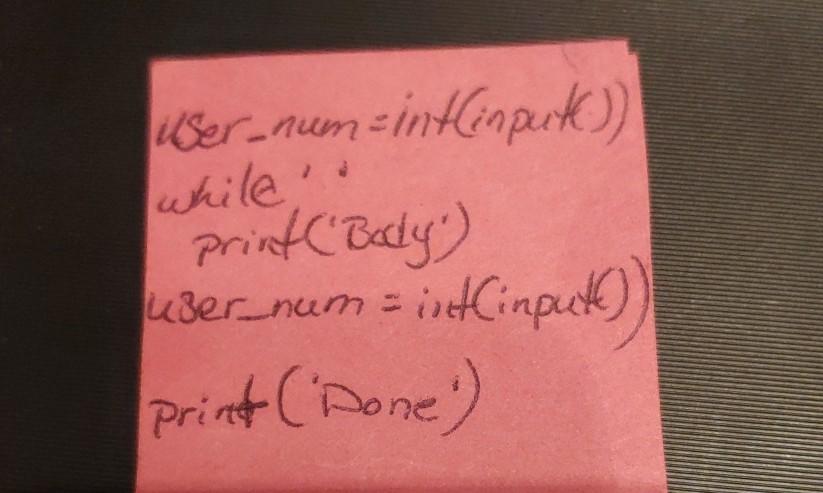 user_num=int(input())
while ' '
print('Body')
user_num = int(input())
print('Done')